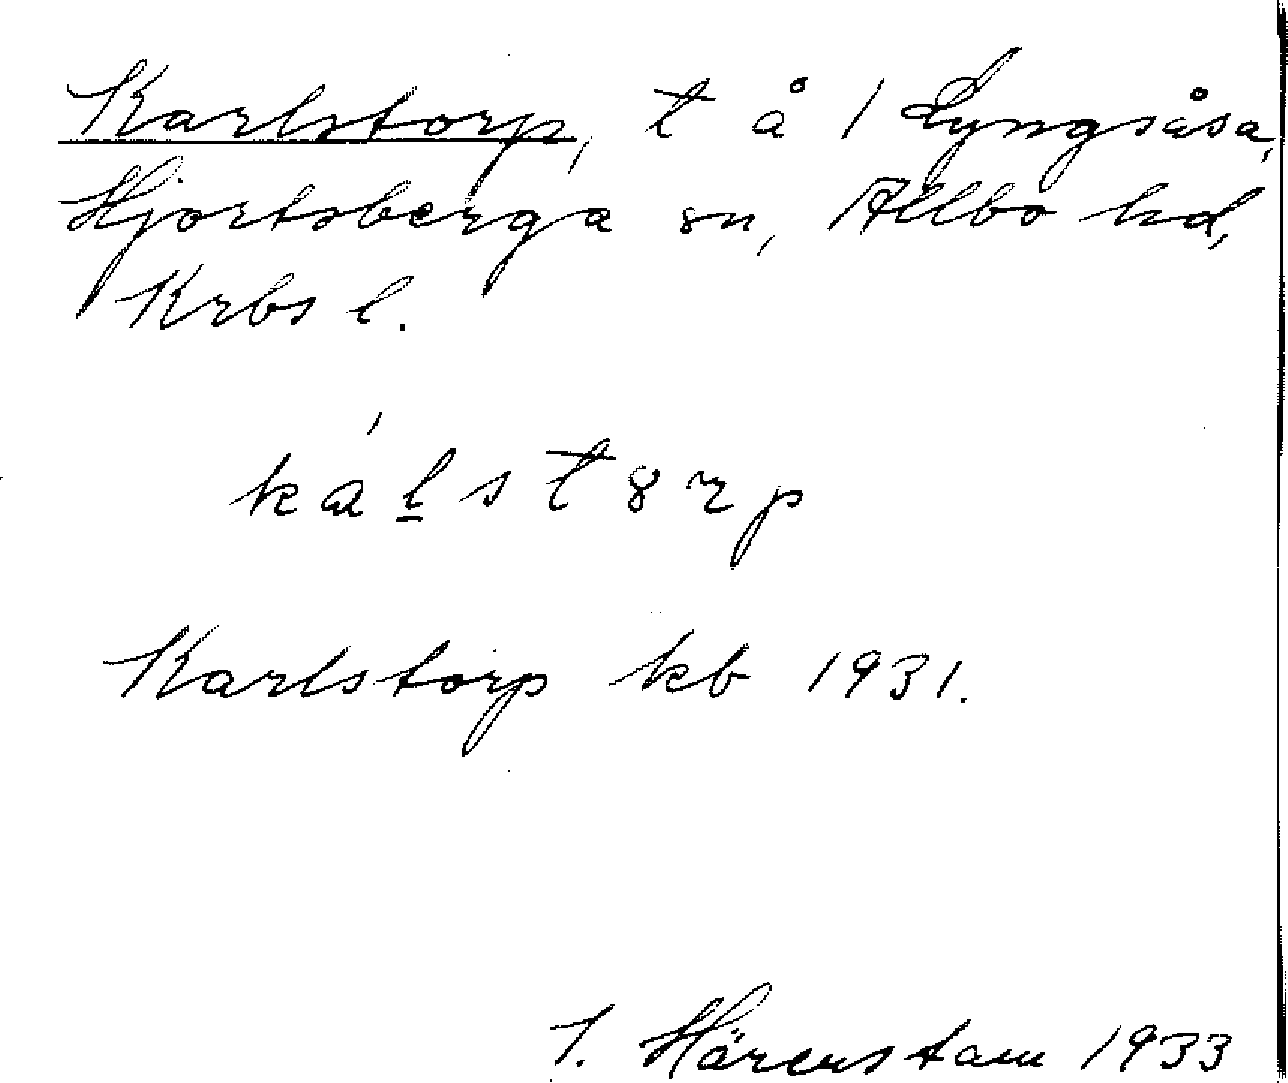 Karlstorp, t å 1 Lyngsåsa,
Hjortsberga sn, Allbo hd,
Krbs l.
ká l̲ s t 8 r p
Karlstorp kb 1931.
I. Härenstam 1933